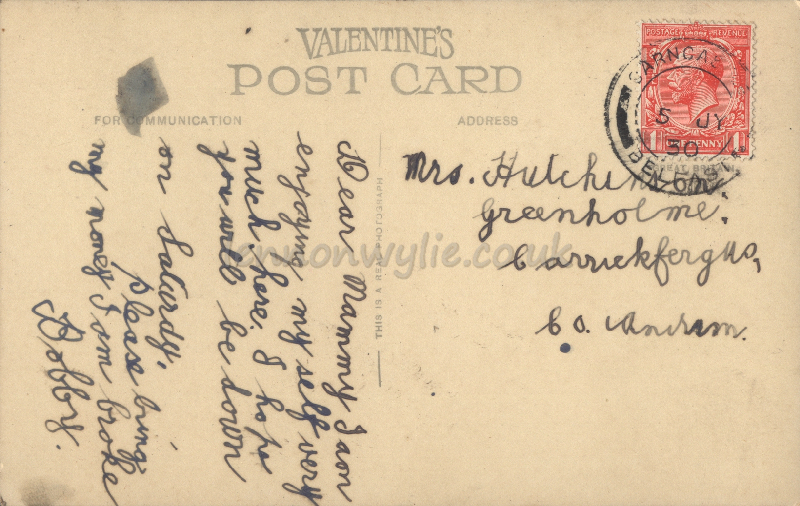 VALENTINE'S
POST CARD
FOR COMMUNICATION
ADDRESS
Dear Mammy I am
enjoying my self very
much here. I hope
you will be down
on Saturdy,
please bring
my money I am broke
Bobby.
THIS IS A REAL PHOTOGRAPH
Mrs. Hutchinson,
Greenholme,
Carrickfergus,
Co. Antrim.
POSTAGE REVENUE
1 ONE PENNY
5 JY
30
BELFAST
lennonwylie.co.uk